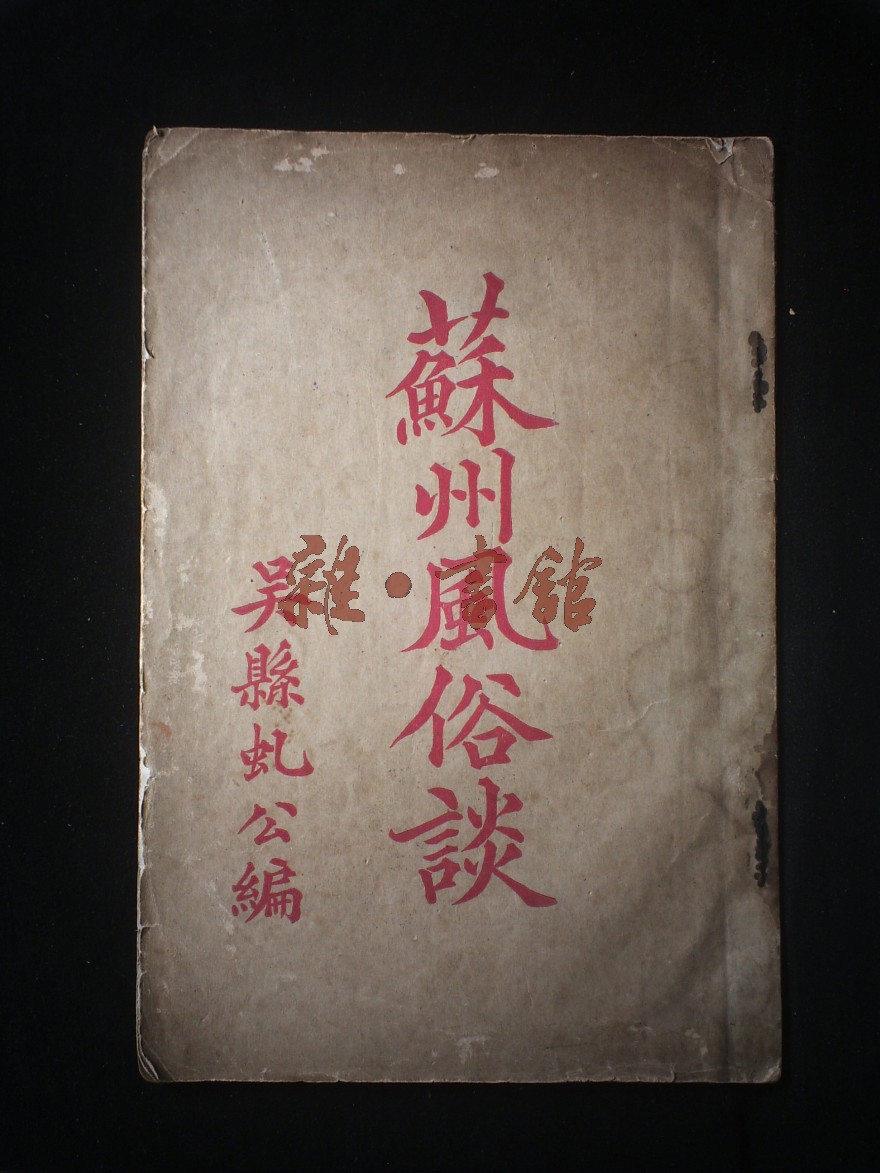 蘇州風俗談
吳縣虬公編
雜·書舘